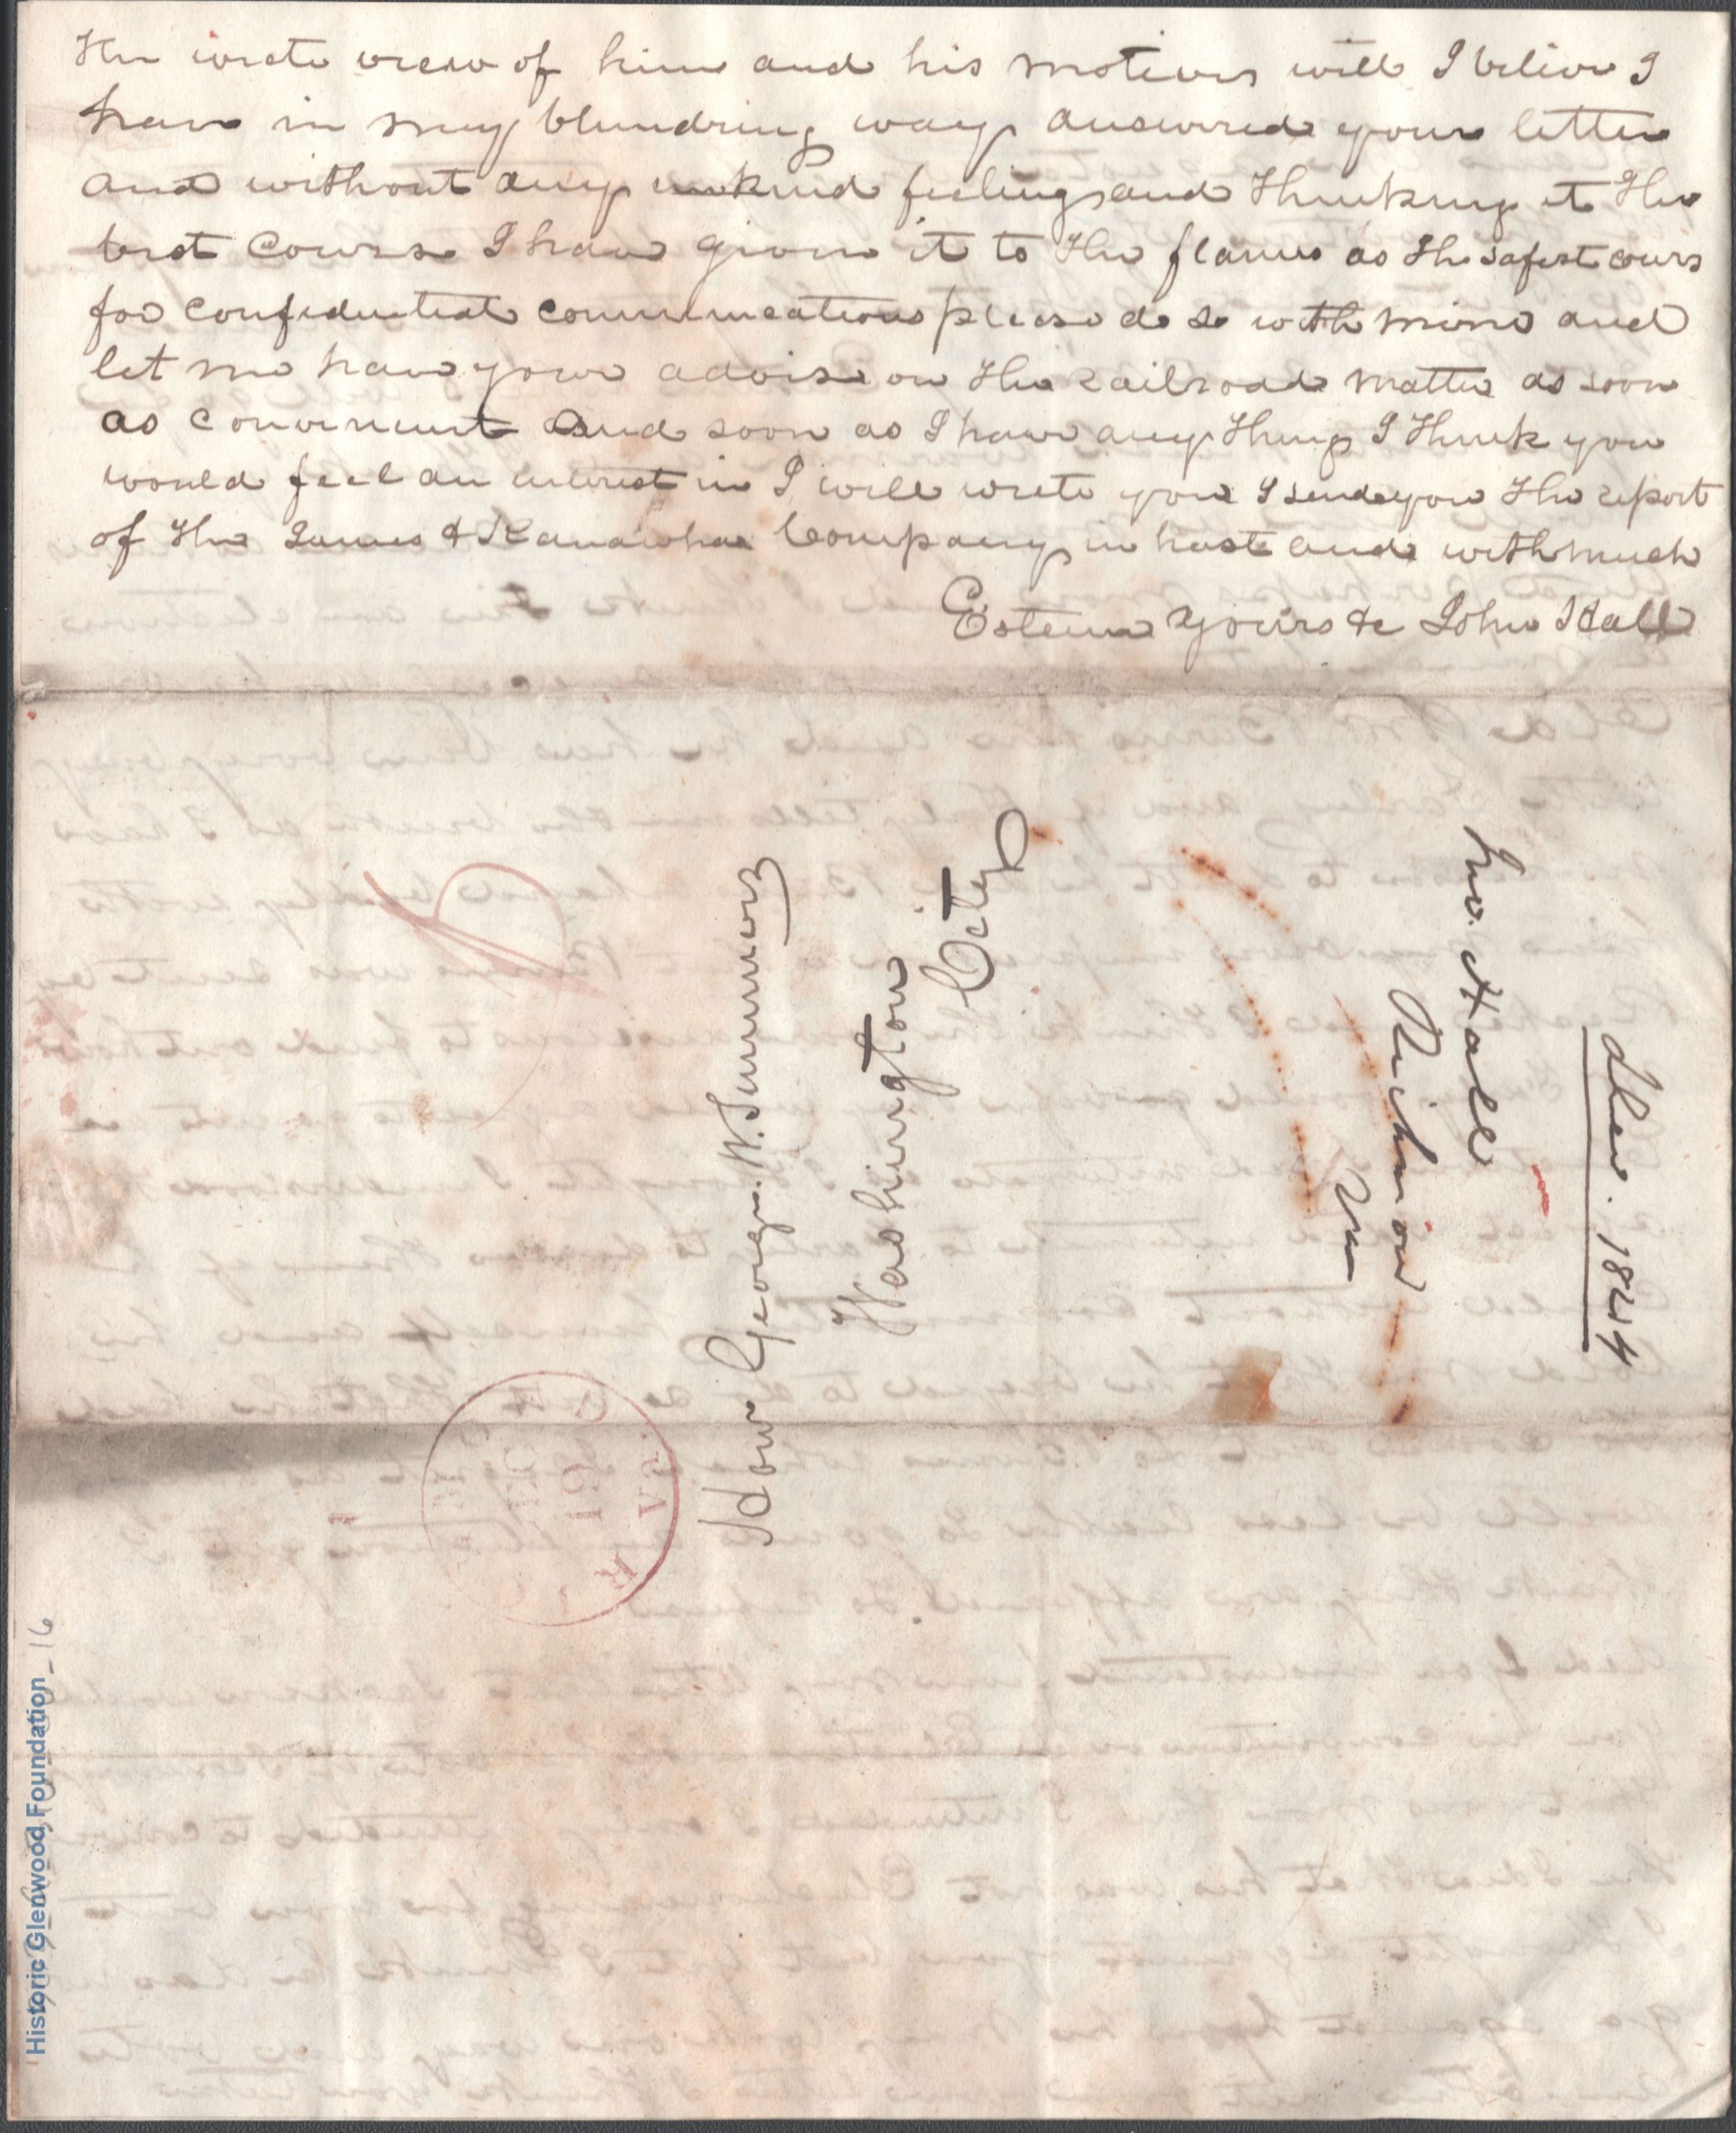 the wrote view of him and his motives will I belive I
have in my blundring way answered your letter
and without any unkind feelings and thinking it the
best course I have given it to the flames as the safest cours
for confidential communications please do so with mine and
let me have your advise on the railroad matter as soon
as convenient and soon as I have any thing I think you
would feel an interest in I will write you I send you the report
of the James & Kanawha Company in haste and with much
Esteem yours &c John Hall
Hon George W. Summers
Washington
City
Jno. Hall
Richmond
Va
Decr. 1844
RICHMOND VA.
DEC
19
Historic Glenwood Foundation_16